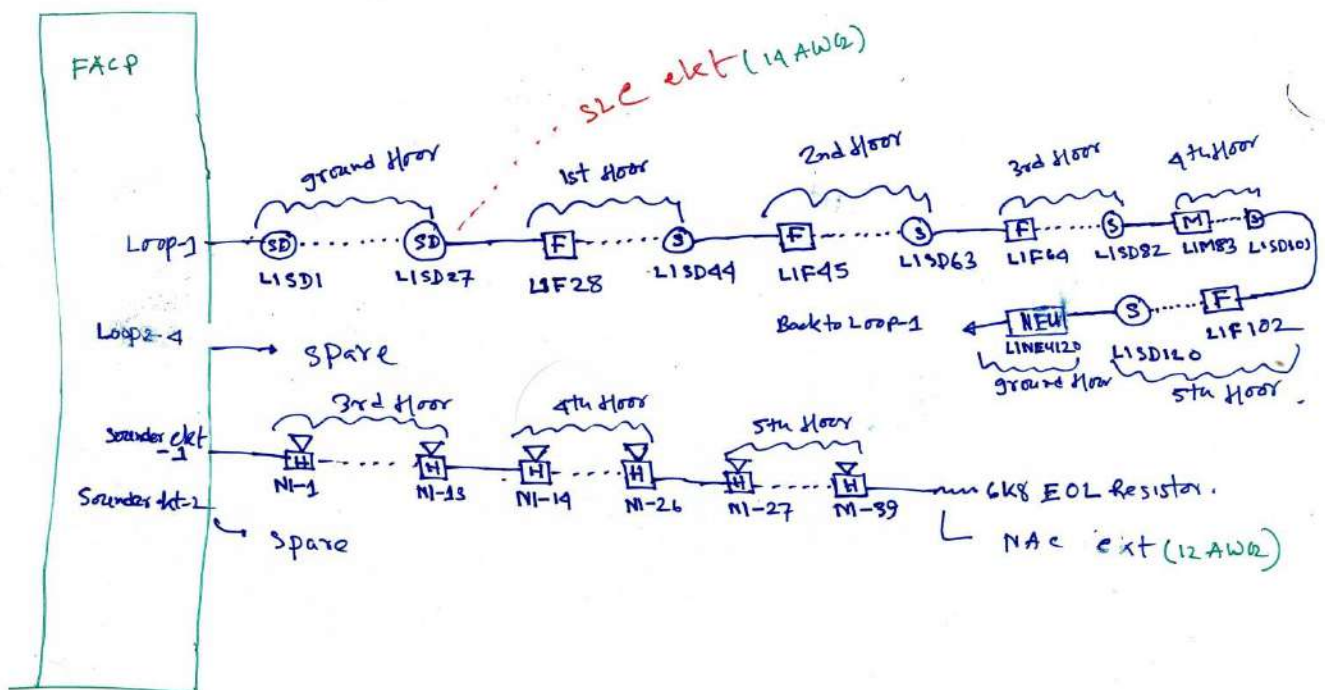 FACP
SLC ckt (14 AWG)
ground floor
1st floor
2nd floor
3rd floor
4th floor
Loop-1
SD
SD
F
S
F
S
F
S
M
S
L1SD1
L1SD27
L1F28
L1SD44
L1F45
L1SD63
L1F64
L1SD82
L1M83
L1SD101
Back to Loop-1
NEU
S
F
L1NEU120
L1SD120
L1F102
ground floor
5th floor.
Loop2-4
Spare
3rd floor
4th floor
5th floor
Sounder ckt
-1
H
H
H
H
H
H
N1-1
N1-13
N1-14
N1-26
N1-27
N1-39
6K8 EOL Resistor.
Sounder ckt-2
Spare
NAC ckt (12 AWG)